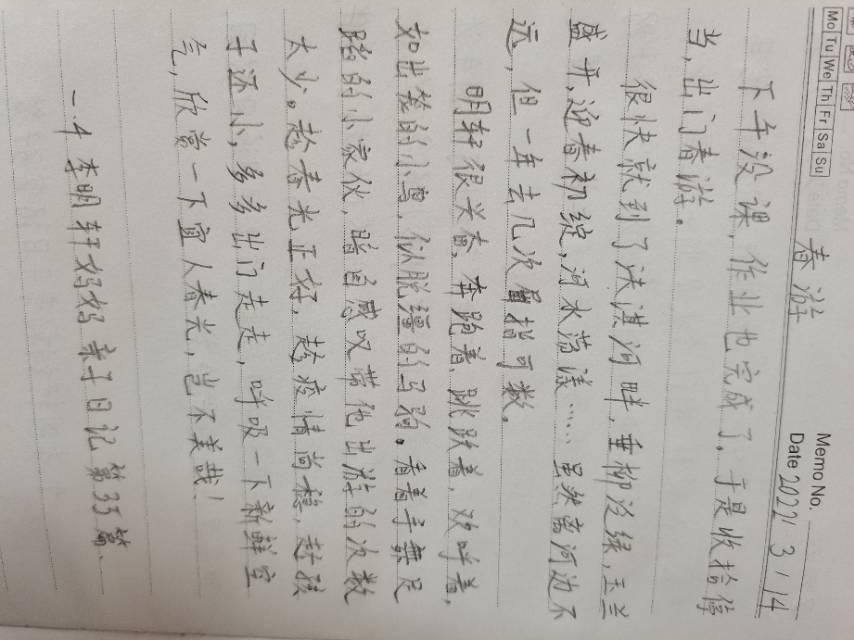 Mo Tu We Th Fr Sa Su
Memo No.
Date 2022 / 3 / 14
春游
下午没课,作业也完成了,于是收拾停
当,出门春游。
很快就到了汰淇河畔,垂柳泛绿,玉兰
盛开,迎春初绽,河水荡漾……虽然离河边不
远,但一年去几次屈指可数。
明轩很兴奋,奔跑着、跳跃着,欢呼着,
如出笼的小鸟,似脱缰的马驹。看着手舞足
蹈的小家伙,暗自感叹带他出游的次数
太少。趁春光正好,趁疫情尚稳,趁孩
子还小,多多出门走走,呼吸一下新鲜空
气,欣赏一下宜人春光,岂不美哉!
一.4 李明轩妈妈 亲子日记 第35篇、